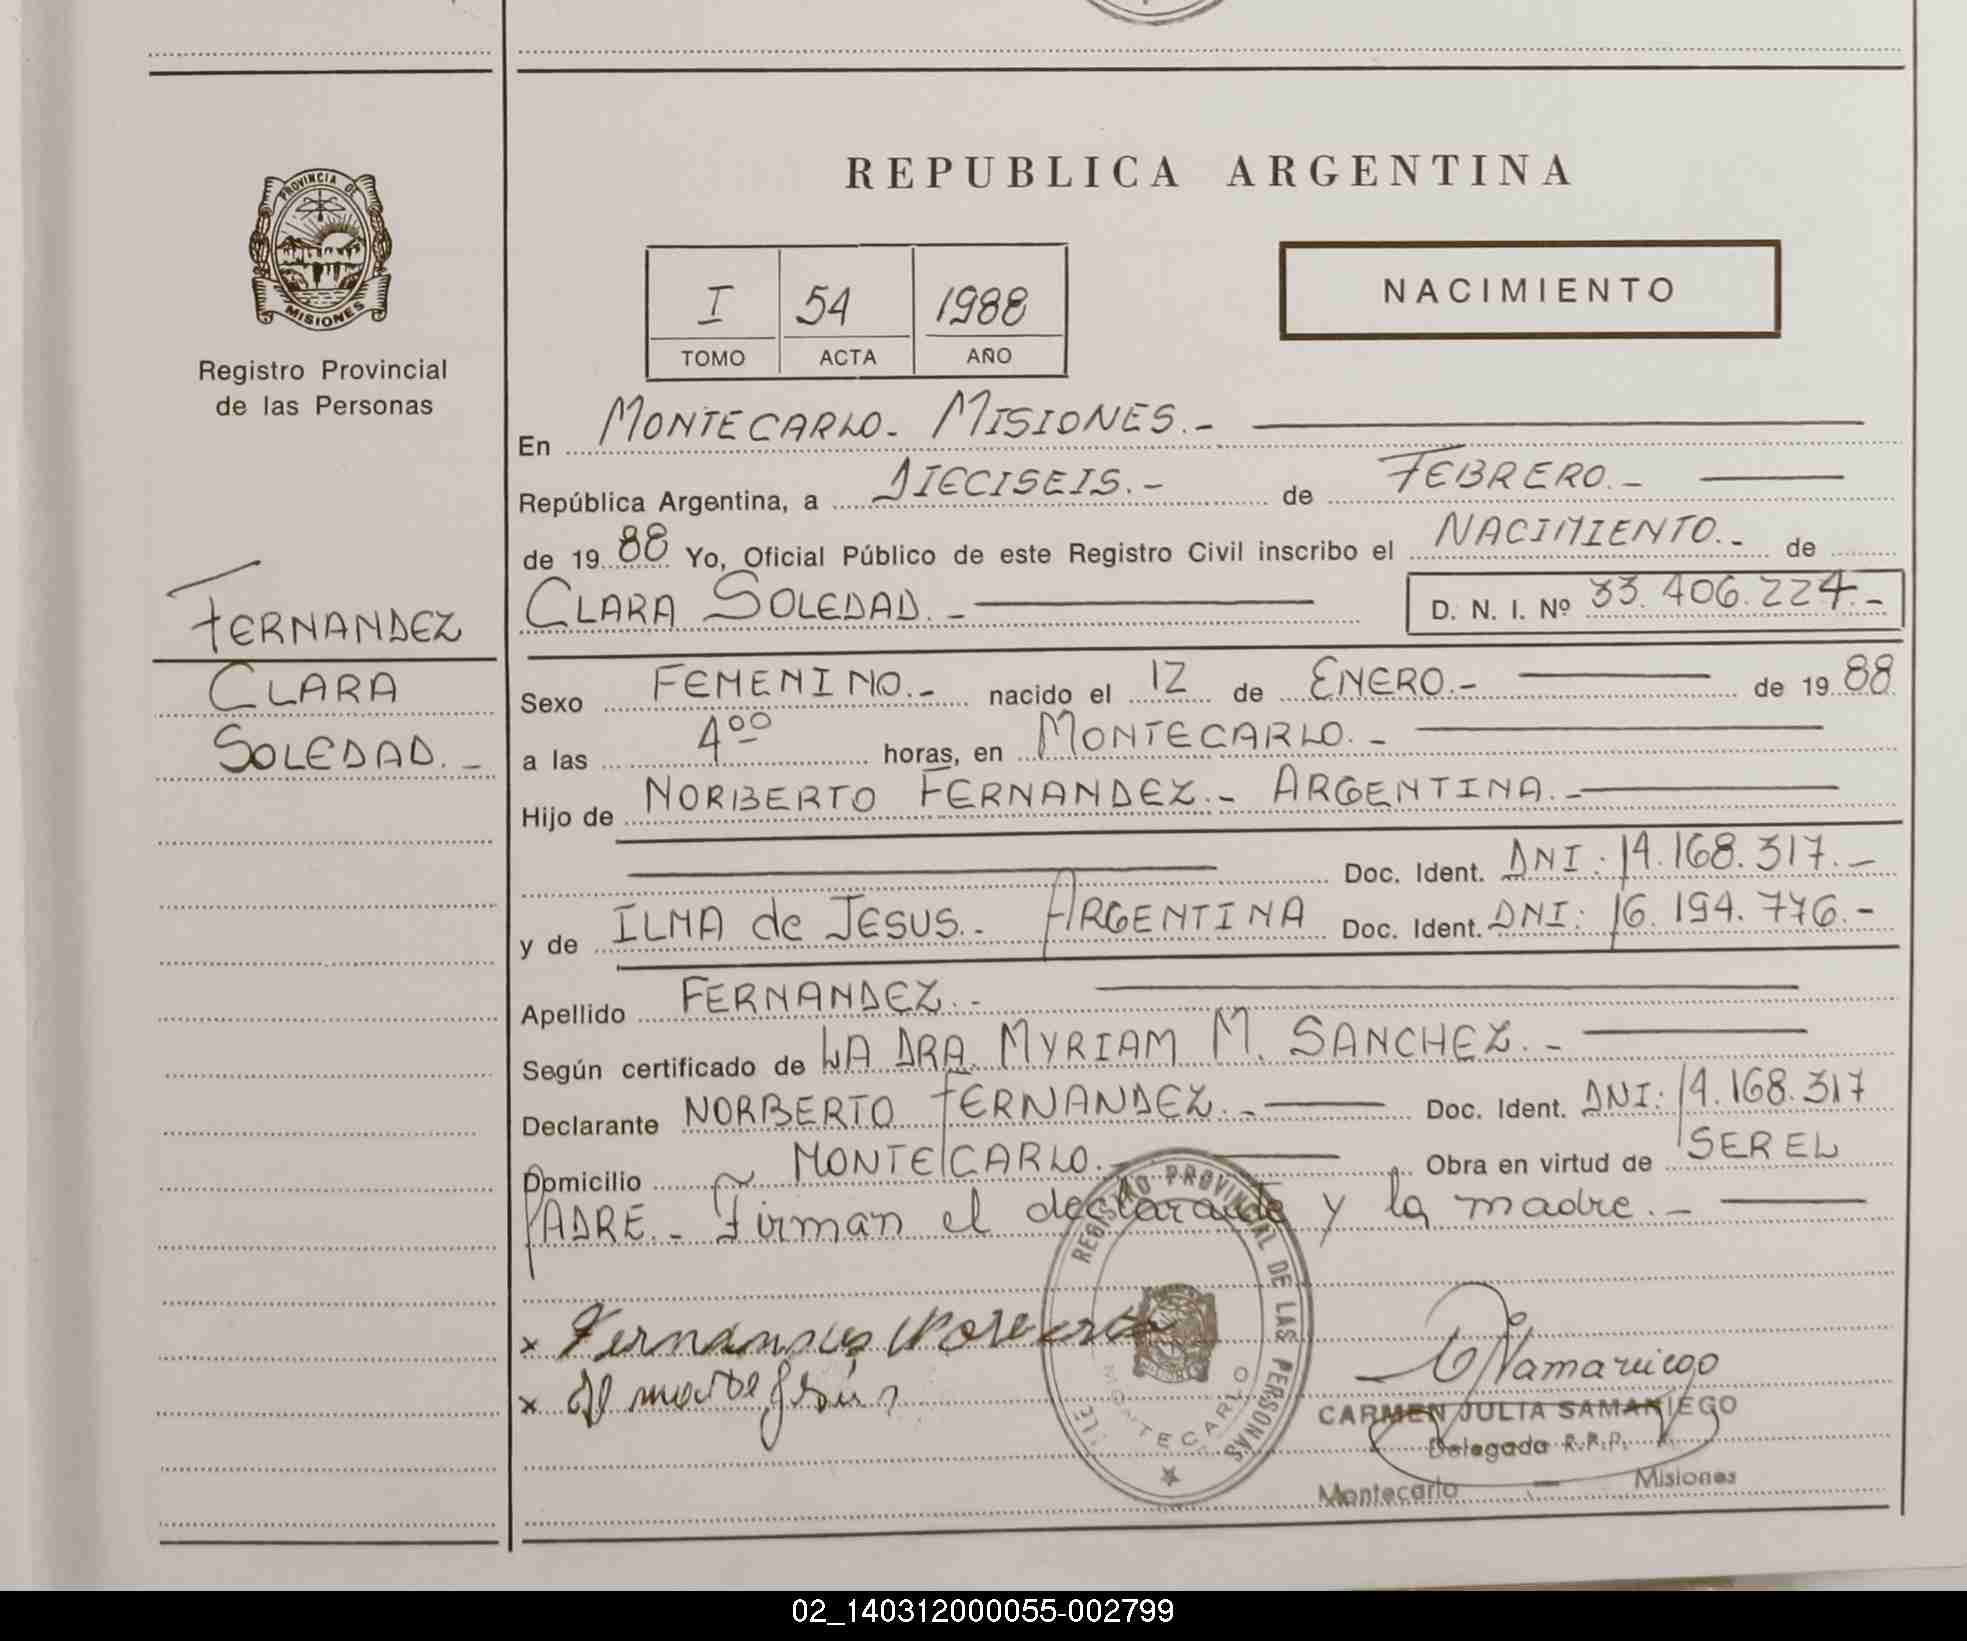 PROVINCIA DE
MISIONES
Registro Provincial
de las Personas
FERNANDEZ
CLARA
SOLEDAD.-
REPUBLICA ARGENTINA
I 54 1988
TOMO ACTA AÑO
NACIMIENTO
En MONTECARLO- MISIONES.-
República Argentina, a DIECISEIS.- de FEBRERO.-
de 1988 Yo, Oficial Público de este Registro Civil inscribo el NACIMIENTO.- de
CLARA SOLEDAD.- D. N. I. Nº 33.406.224.-
Sexo FEMENINO.- nacido el 12 de ENERO.- de 1988
a las 4⁰⁰ horas, en MONTECARLO.-
Hijo de NORBERTO FERNANDEZ.- ARGENTINA.-
Doc. Ident. DNI: 14.168.317.-
y de ILMA de JESUS.- ARGENTINA Doc. Ident. DNI: 16.194.776.-
Apellido FERNANDEZ.-
Según certificado de LA DRA. MYRIAM M. SANCHEZ.-
Declarante NORBERTO FERNANDEZ.- Doc. Ident. DNI: 14.168.317
Domicilio MONTECARLO.- Obra en virtud de SER EL
PADRE.- Firman el declarante y la madre.-
REGISTRO PROVINCIAL DE LAS PERSONAS
MONTECARLO
x Fernandes Norberto
x
Samaniego
CARMEN JULIA SAMANIEGO
Delegada R.P.P.
Montecarlo - Misiones
02_140312000055-002799